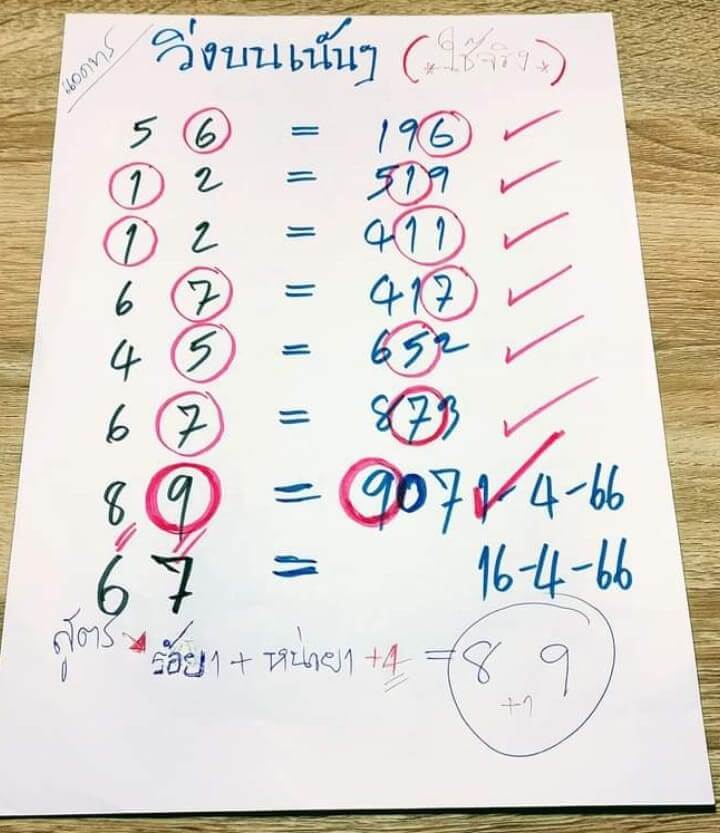 แอดทร์
วิ่งบนเน้นๆ (*ใช้จริง*)
5 6 = 196
1 2 = 519
1 2 = 411
6 7 = 417
4 5 = 652
6 7 = 873
8 9 = 907 1-4-66
6 7 = 16-4-66
สูตร ร้อย1 + หน่วย1 +4 = 8 9
+1